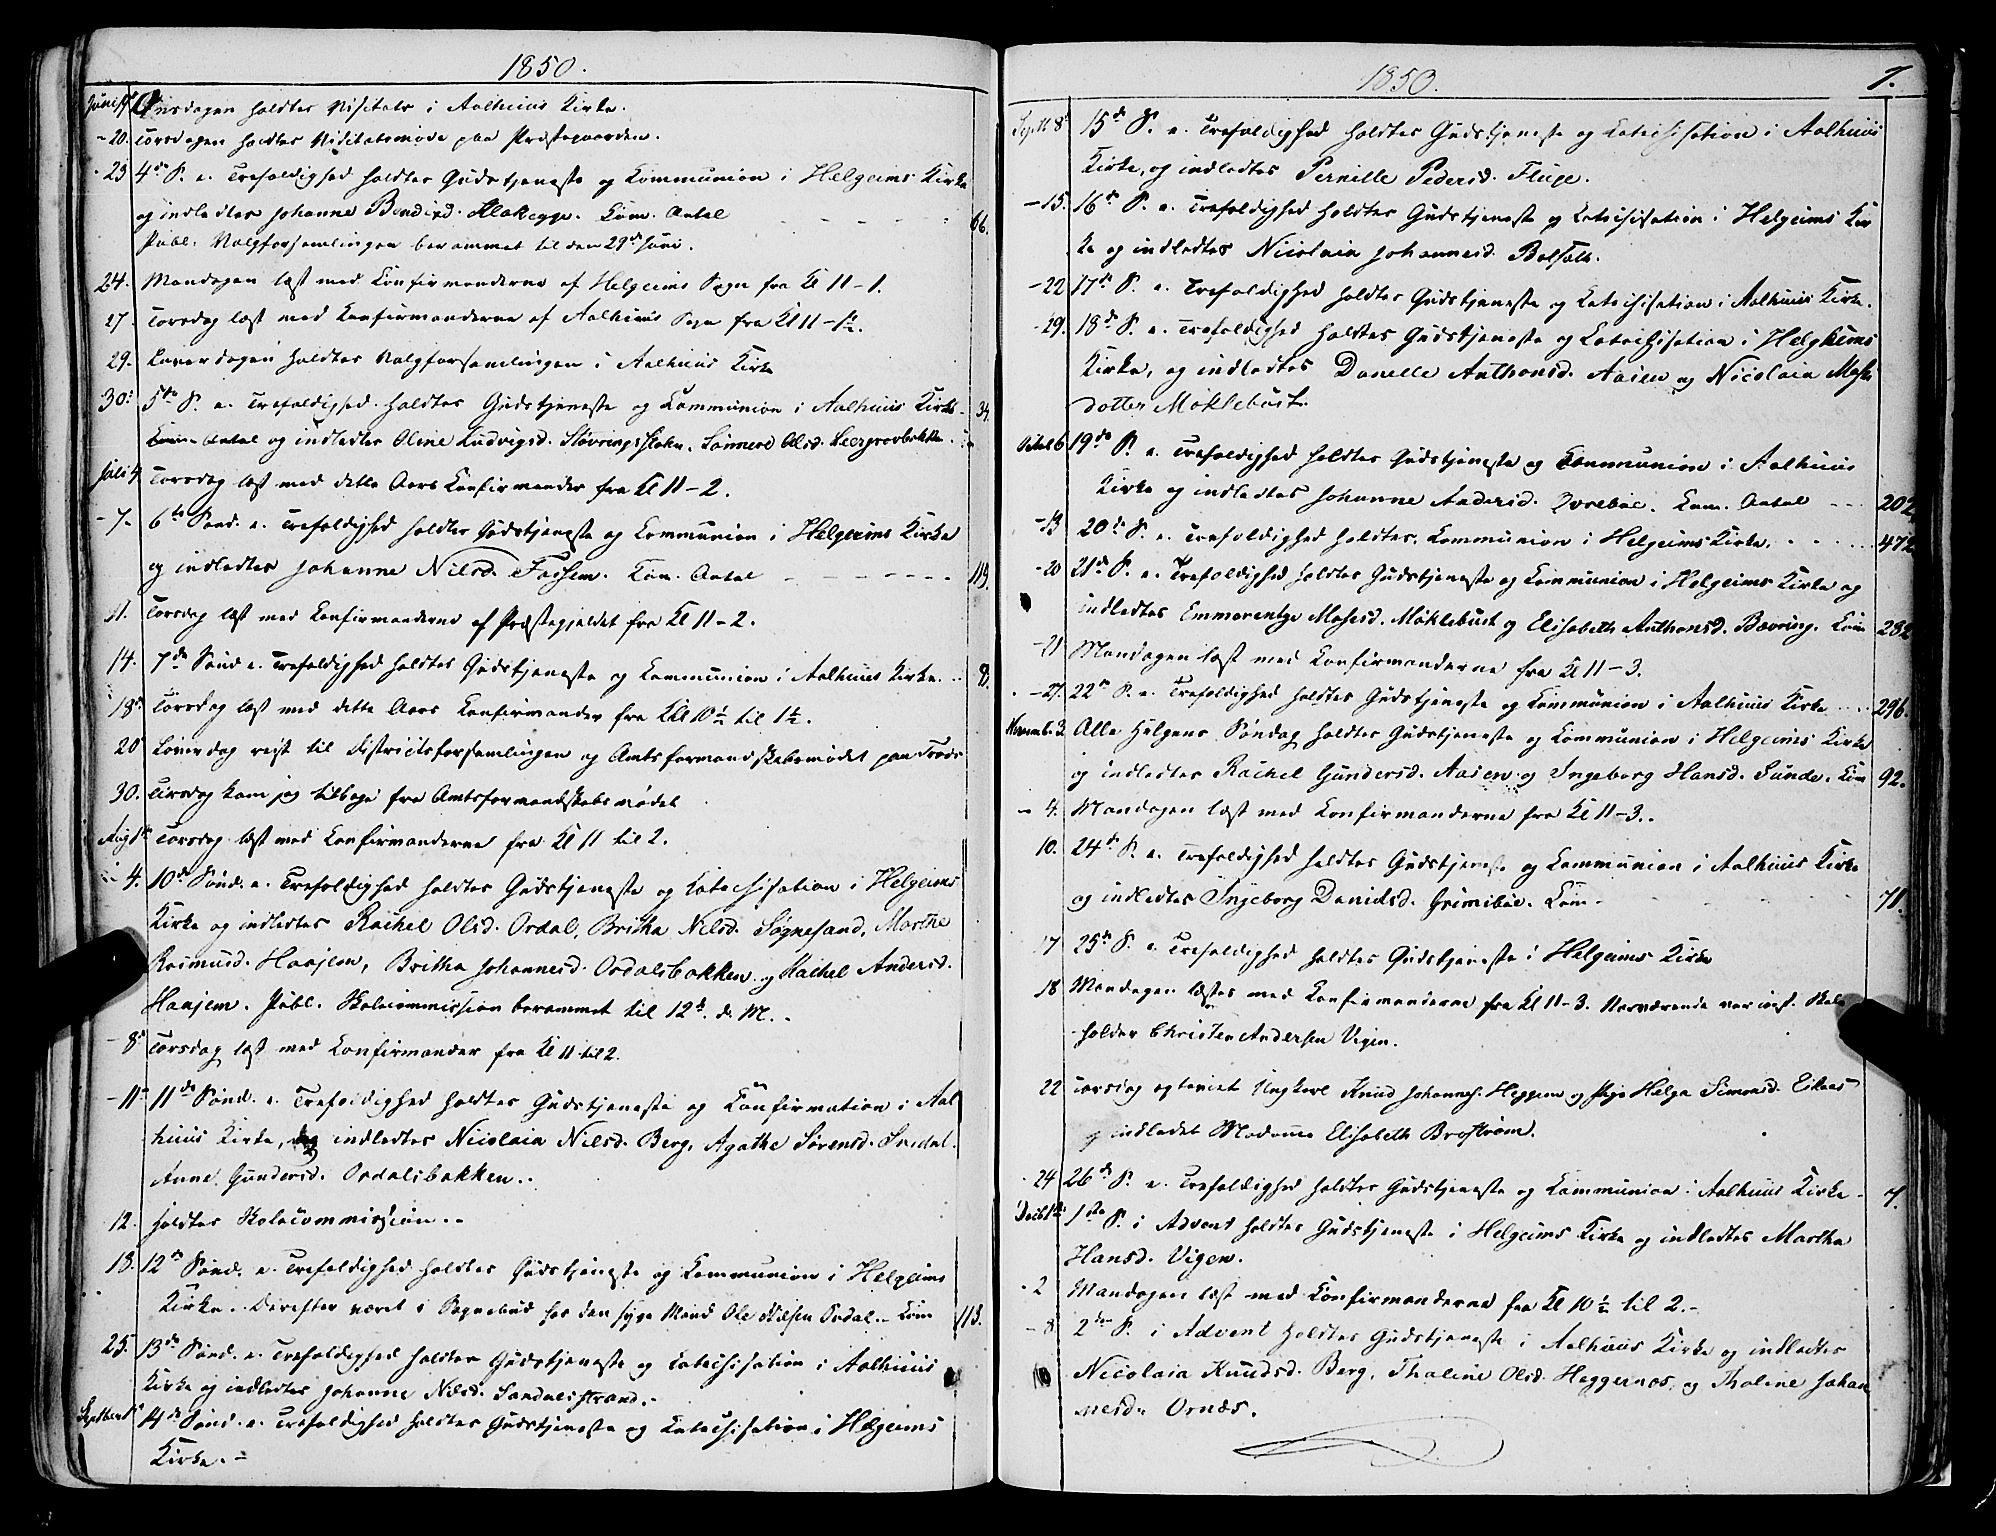 1850.
Juni 19 Onsdagen holdtes Visitats i Aalhuus Kirke.
- 20. Torsdagen holdtes Visitatsmøde paa Præstegaarden.
- 23 4de S. e. Trefoldighed holdtes Gudstjeneste og Kommunion i Helgeims Kirke
og indledtes Johanne Bendixd. Klakegge. Com. Antal - - - - 66.
Publ. Valgforsamlingen berammet til den 29de Juni.
24. Mandagen læst med Konfirmanderne af Helgeims Sogn fra Kl 11-1.
27. Torsdag læst med Konfirmanderne af Aalhuus Sogn fra Kl 11-1½.
29. Løverdagen holdtes Valgforsamlingen i Aalhuus Kirke
30. 5te S. e. Trefoldighed holdtes Gudstjeneste og Kommunion i Aalhuus Kirke - 34.
Com. Antal og indledtes Oline Ludvigsd. Støvringsflaten, Synneve Olsd.
Juli 4 Torsdag læst med dette Aars Konfirmander fra Kl 11-2.
- 7. 6te Sønd. e. Trefoldighed holdtes Gudstjeneste og Kommunion i Helgeims Kirke
og indledtes Johanne Nilsd. Fossem. Com. Antal - - - - - - - 119.
11. Torsdag læst med Konfirmanderne af Præstegjeldet fra Kl 11-2.
14. 7de Sønd e. Trefoldighed holdtes Gudstjeneste og Kommunion i Aalhuus Kirke. .. 8.
18de Torsdag læst med dette Aars Konfirmander fra Kl 10½ til 1½.
20 Løverdag reist til Districtsforsamlingen og Amtsformandskabsmødet paa
30. Tirsdag kom jeg tilbage fra Amtsformandskabsmødet
Aug 1ste Torsdag læst med Konfirmanderne fra Kl 11 til 2.
4. 10de Sønd. e. Trefoldighed holdtes Gudstjeneste og Katechisation i Helgeims
Kirke og indledtes Rachel Olsd. Ordal, Britha Nilsd. Søgnesand, Marthe
Rasmusd. Haajem, Britha Johannesd. Ordalsbakken og Rachel Andersd.
Haajem. Publ. Skolecommission berammet til 12te d. M. -
- 8de Torsdag læst med Konfirmander fra Kl 11 til 2.
- 11te 11de Sønd. e. Trefoldighed holdtes Gudstjeneste og Konfirmation i Aal
huus Kirke, og indledtes Nicolaia Nilsd. Berg, Agathe Sørensd. Aardal.
Anne Gundersd. Ordalsbakken. -
12. holdtes Skolecommission. -
18. 12te Sønd. e. Trefoldighed holdtes Gudstjeneste og Kommunion i Helgeims
Kirke. Derefter været i Sognebud hos den syge Mand Ole Nilsen Ordal. - Com 113.
25. 13de Sønd. e. Trefoldighed holdtes Gudstjeneste og Katechisation i Aalhuus
Kirke og indledtes Johanne Nilsd. Sandalsstrand. -
Septber 1ste 14de Sønd. e. Trefoldighed holdtes Gudstjeneste og Katechisation i Helgeims
Kirke. -
1850. 7.
Septb 8de 15de S. e. Trefoldighed holdtes Gudstjeneste og Katechisation i Aalhuus
Kirke, og indledtes Pernille Pedersd. Fluge.
- 15. 16de S. e. Trefoldighed holdtes Gudstjeneste og Katechisation i Helgeims Kir
ke og indledtes Nicolaia Johannesd. Bolsæth.
- 22 17de S. e. Trefoldighed holdtes Gudstjeneste og Katechisation i Aalhuus Kirke.
- 29. 18de S. e. Trefoldighed holdtes Gudstjeneste og Katechisation i Helgheims
Kirke, og indledtes Danelle Anthonsd. Aasen og Nicolaia Mose
dotter Møklebust.
Octob 6 19de S. e. Trefoldighed holdtes Gudstjeneste og Kommunion i Aalhuus
Kirke og indledtes Johanne Andersd. Com. Antal - - - 202.
- 13 20de S. e. Trefoldighed holdtes Kommunion i Helgeims Kirke. . . . . . . 472
- 20 21de S. e. Trefoldighed holdtes Gudstjeneste og Kommunion i Helgeims Kirke og
indledtes Emmerentze Mosesd. Møklebust og Elisabeth Anthonsd. Bævring. Com 282
- 21 Mandagen læst med Konfirmanderne fra Kl 11-3.
- 27. 22de S. e. Trefoldighed holdtes Gudstjeneste og Kommunion i Aalhuus Kirke . . . 296.
Novemb. 3. Alle Helgens Søndag holdtes Gudstjeneste og Kommunion i Helgeims Kirke
og indledtes Rachel Gundersd. Aasen og Ingeborg Hansd. Sunde. Com 92.
- 4. Mandagen læst med Konfirmanderne fra Kl 11-3.
10. 24de S. e. Trefoldighed holdtes Gudstjeneste og Kommunion i Aalhuus Kirke
og indledtes Ingeborg Davidsd. Grimibøe. Com - - - 71.
17 25de S. e. Trefoldighed holdtes Gudstjeneste i Helgeims Kirke
18 Mandagen læstes med Konfirmanderne fra Kl 11-3. Nærværende var const. Skole
holder Christen Andersen Vigen.
22 Torsdag copuleret Ungkarl Knud Johannes. Heggem og Pige Helga Simonsd. Eikaas
og indledet Madame Elisabeth Brostrøm.
- 24 26de S. e. Trefoldighed holdtes Gudstjeneste og Kommunion i Aalhuus Kirke - 7.
Decbr 1ste 1ste S. i Advent holdtes Gudstjeneste i Helgeims Kirke og indledtes Marthe
Hansd. Vigen.
- 2 Mandagen læst med Konfirmanderne fra Kl 10½ til 2. -
- 8 2den S. i Advent holdtes Gudstjeneste i Aalhuus Kirke og indledtes
Nicolaia Knudsd. Berg, Thaline Olsd. Heggernæs, og Thaline Johan
nesd. Ornæs.